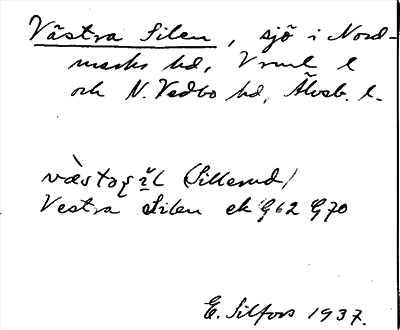 Västra Silen, sjö i Nord-
marks hd, Vrml l
och N. Vedbo hd, Älvsb. l.
(Sillerud)
Vestra Silen ek G62 G70
E. Silfors 1937.